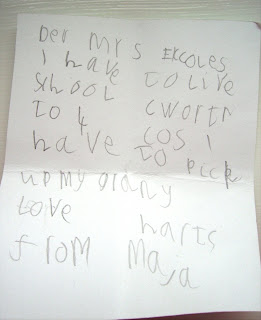 Der Mrs Eccoles
I have to live
School cworti
to 4
have cos I
to pick
up my grany
Love harts
from Maja